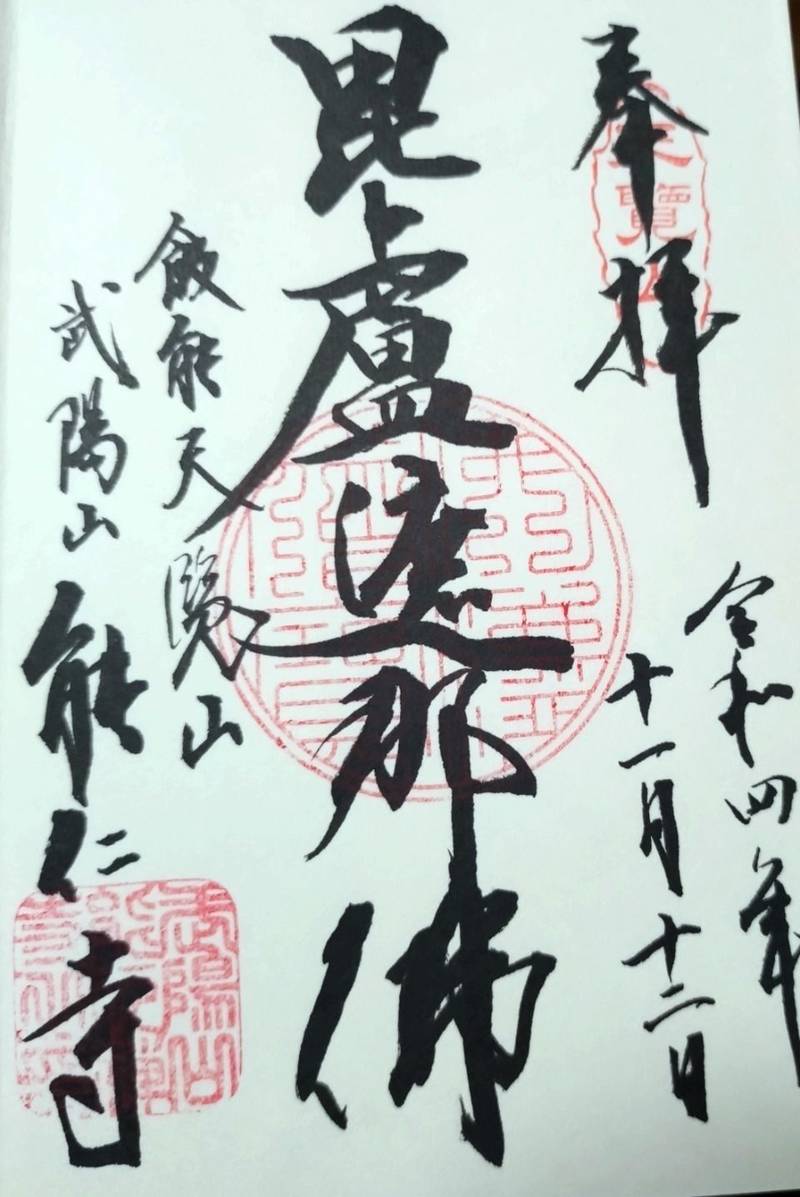 奉拝
令和四年
十一月十二日
毘盧遮那佛
飯能天覧山
武陽山能仁寺